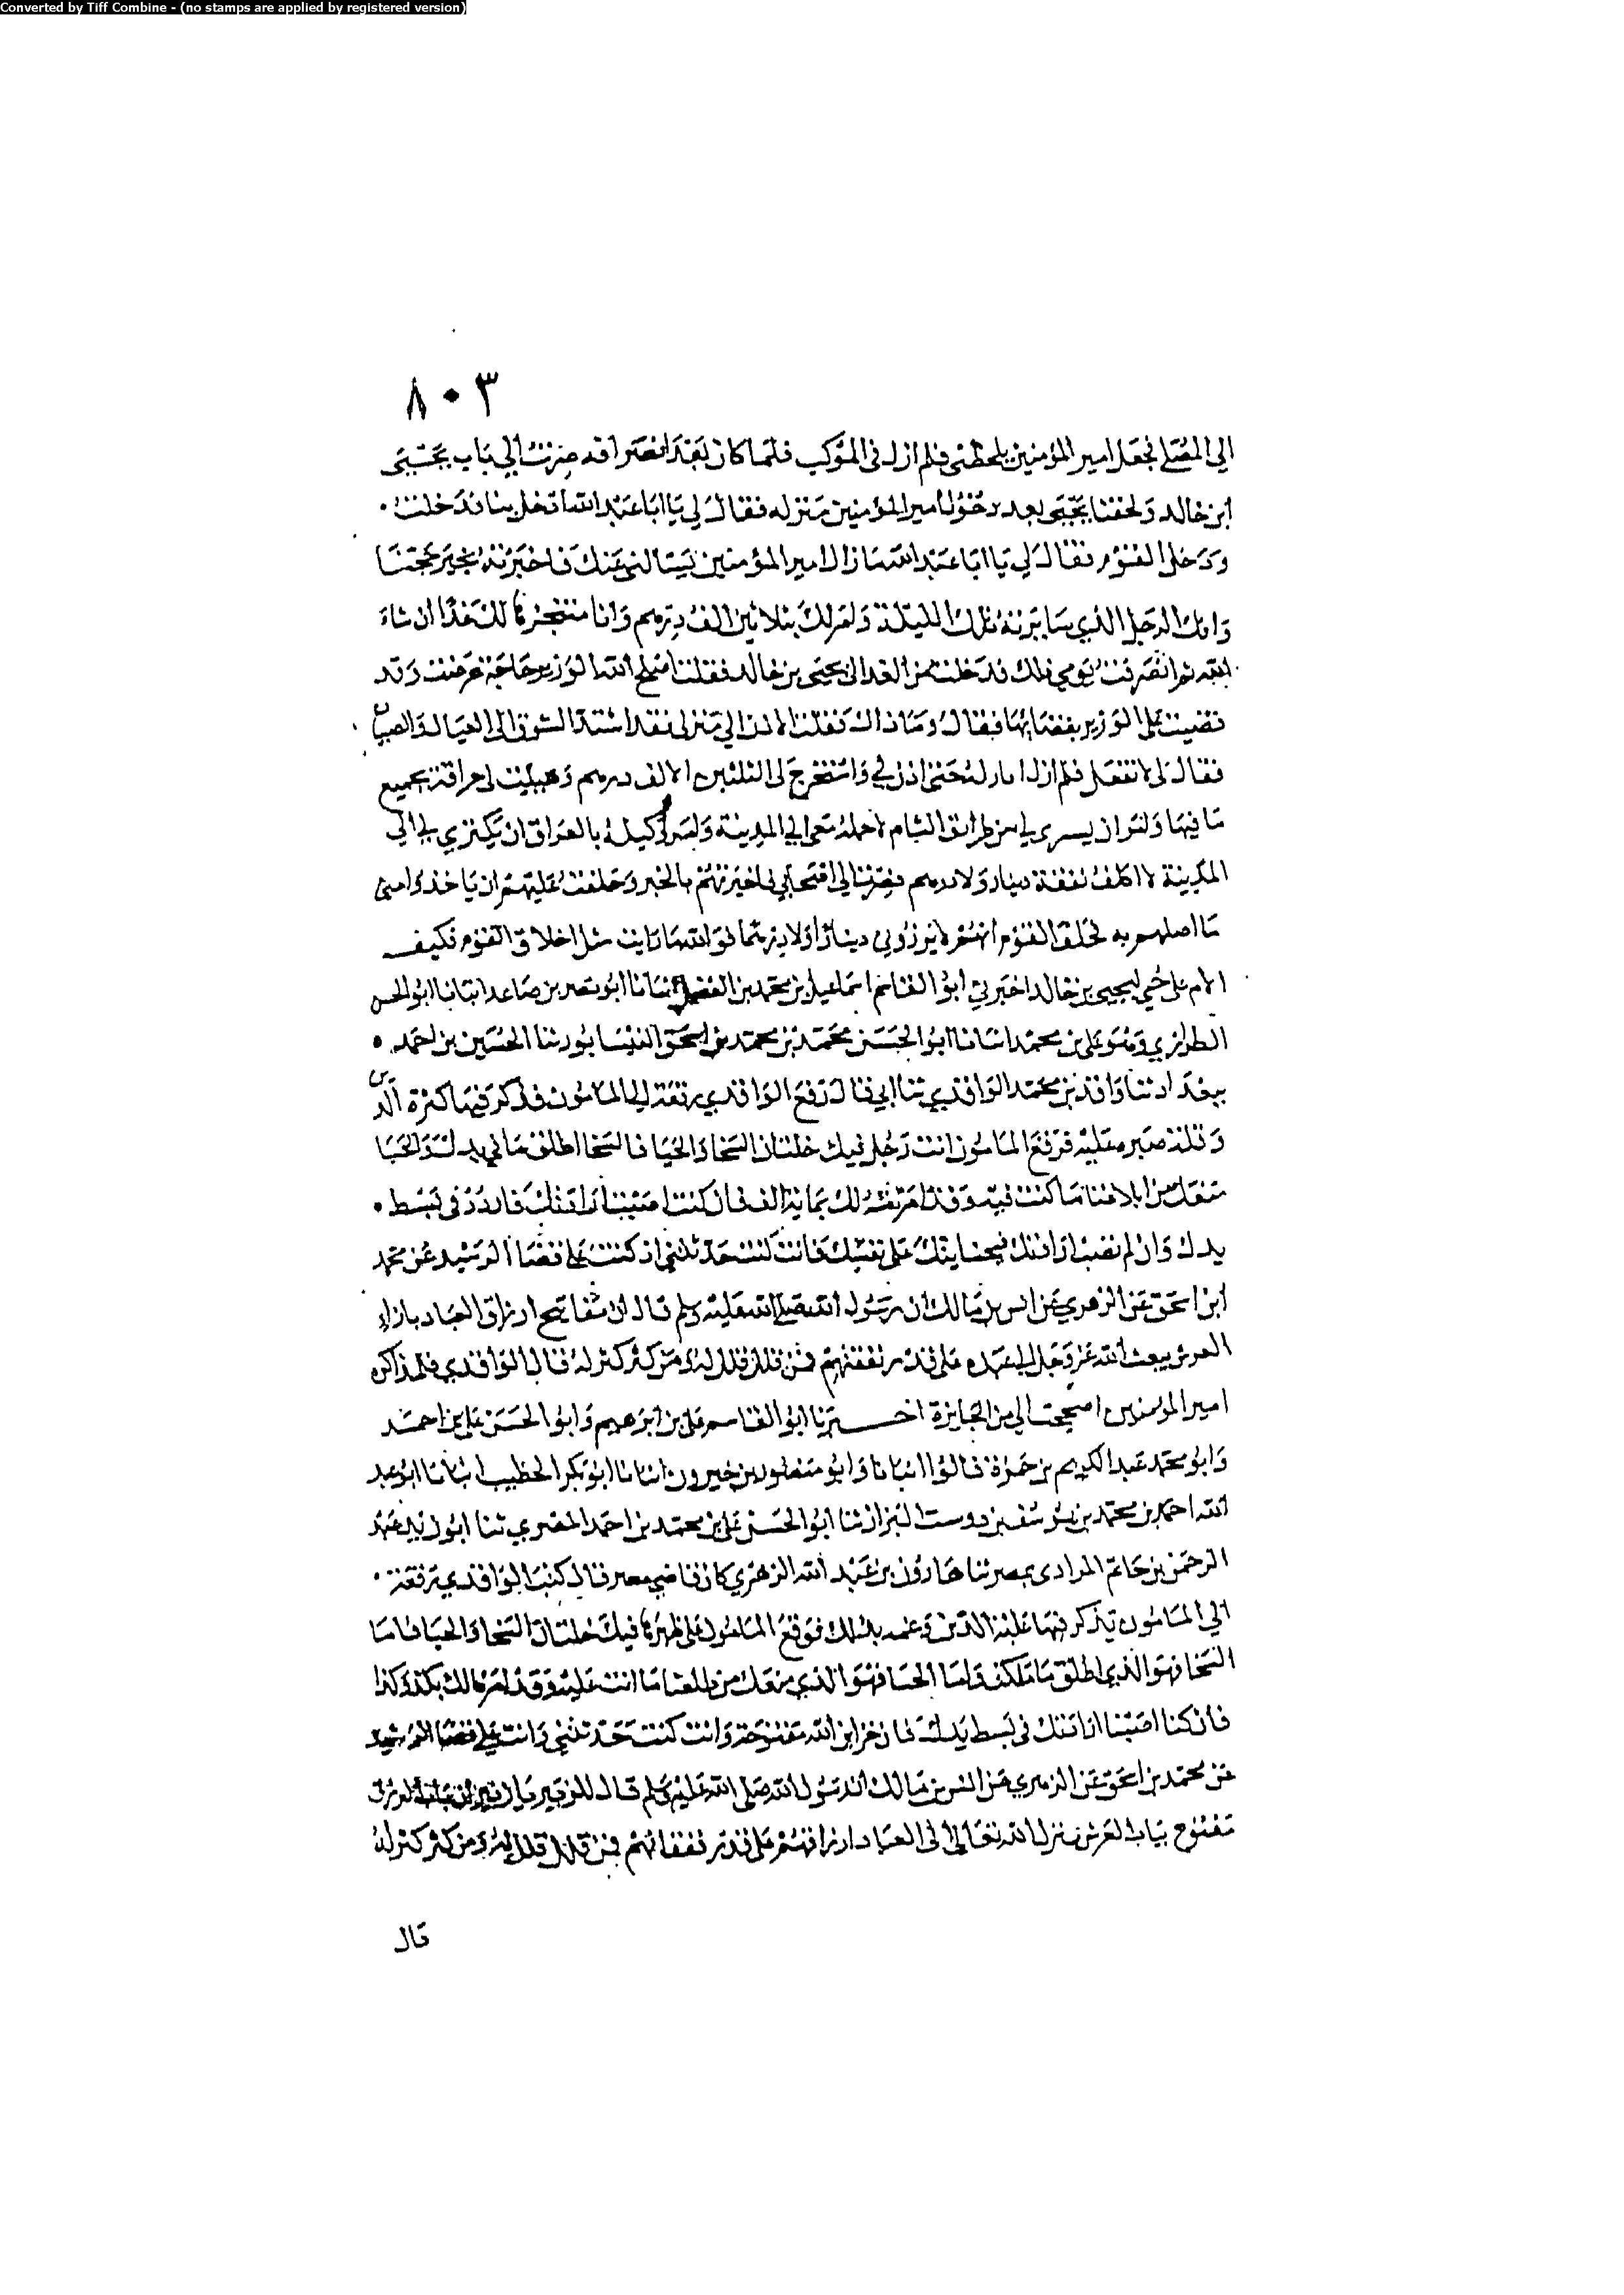 Converted by Tiff Combine - (no stamps are applied by registered version)
٨٠٣
الي المصلي فجعل امير المؤمنين يلحظني فلم ازل في الموكب فلما كان بعد انصرافه صرت الي باب يحيى
ابن خالد ولحقنا يحيى بعد دخول امير المؤمنين منزله فقال لي يا ابا عبد الله ادخل بنا فدخلت
ودخل القوم فقال لي يا ابا عبد الله ما زال امير المؤمنين يسالني عنك فاخبرته بخبر حجنا
وانك الرجل الذي سايرته تلك الليلة وامر لك بثلاثين الف درهم وانا متنجزها لك غدا ان شاء
الله ثم انصرفت يومي ذلك فدخلت من الغد الى يحيى بن خالد فقلت اصلح الله الوزير حاجة عرضت وقد
قضيت على الوزير بقضائها فقال وما ذاك فقلت الاذن الي منزلي فقد اشتد الشوق الى العيال والصبيان
فقال لي لا تفعل فلم ازل انازله حتى اذن لي واستخرج لي الثلثين الالف درهم وهييت لي حراقة بجميع
ما فيها وامر ان يشترى لي من طرائف الشام لاحمله معي الي المدينة وامر وكيله بالعراق ان يكتري لي الي
المدينة لا اكلف نفقة دينار ولا درهم فصرت الي اصحابي فاخبرتهم بالخبر وحلفت عليهم ان ياخذوا مني
ما اصلهم به فحلف القوم انهم لا يرزوني دينارا ولا درهما فوالله ما رايت مثل اخلاق القوم فكيف
الام على حبي ليحيى بن خالد اخبرني ابو القاسم اسماعيل بن محمد بن الفضل انبانا ابو نصر بن صاعد انبانا ابو الحسن
الطرازي وهو علي بن محمد انبانا ابو الحسن محمد بن محمد بن اسحق النيسابور ثنا الحسين بن احمد
ببغداد ثنا واقد بن محمد الواقدي ثنا ابي قال رفع الواقدي رقعة الى المامون فذكر فيها كثرة الدين
وقلة صبره عليه فوقع المامون انت رجل فيك خلتان السخا والحيا فالسخا اطلق ما في يديك والحيا
منعك من ابلاغنا ما كنت فيه وقد امرت لك بماية الف فان كنت اصبت ارادتك فازدد في بسط
يدك وان لم نصب ارادتك فبجنايتك على نفسك فانت كنت حدثتني اذ كنت على قضا الرشيد عن محمد
ابن اسحق عن الزهري عن انس بن مالك ان رسول الله صلى الله عليه وسلم قال ان مفاتيح ارزاق العباد بازاء
العرش يبعث الله عز وجل الى عباده على قدر نفقتهم فمن قلل قلل له ومن كثر كثر له قال الواقدي فلمذاكره
امير المومنين اصحت الي من الجايزة اخبرنا ابو القاسم علي بن ابرهيم وابو الحسن علي بن احمد
وابو محمد عبد الكريم بن حمزة قالوا انبانا وابو منصور بن خيرون انبانا ابو بكر الخطيب انبانا ابو عبد
الله احمد بن محمد بن يوسف بن دوست البزاز ثنا ابو الحسن علي بن محمد بن احمد المصري ثنا ابو زيد عبد
الرحمن بن حاتم المرادي بمصر ثنا هارون بن عبد الله الزهري كان قاضي مصر قال كتب الواقدي رقعة
الي المامون يذكر فيها غلبة الدين وغمه بذلك فوقع المامون على ظهرها فيك خلتان السخا والحيا فاما
السخا فهو الذي اطلق ما ملكت واما الحيا فهو الذي منعك من اطلاعنا ما انت عليه وقد امرنا لك بكذا وكذا
فان كنا اصبنا ارادتك في بسط يدك فان خزاين الله مفتوحة وانت كنت حدثتني وانت على قضا الرشيد
عن محمد بن اسحق عن الزهري عن انس بن مالك ان رسول الله صلى الله عليه وسلم قال للزبير يا زبير ان باب الرزق
مفتوح بباب العرش ينزل الله تعالى الى العباد ارزاقهم على قدر نفقاتهم فمن قلل قلل له ومن كثر كثر له
قال